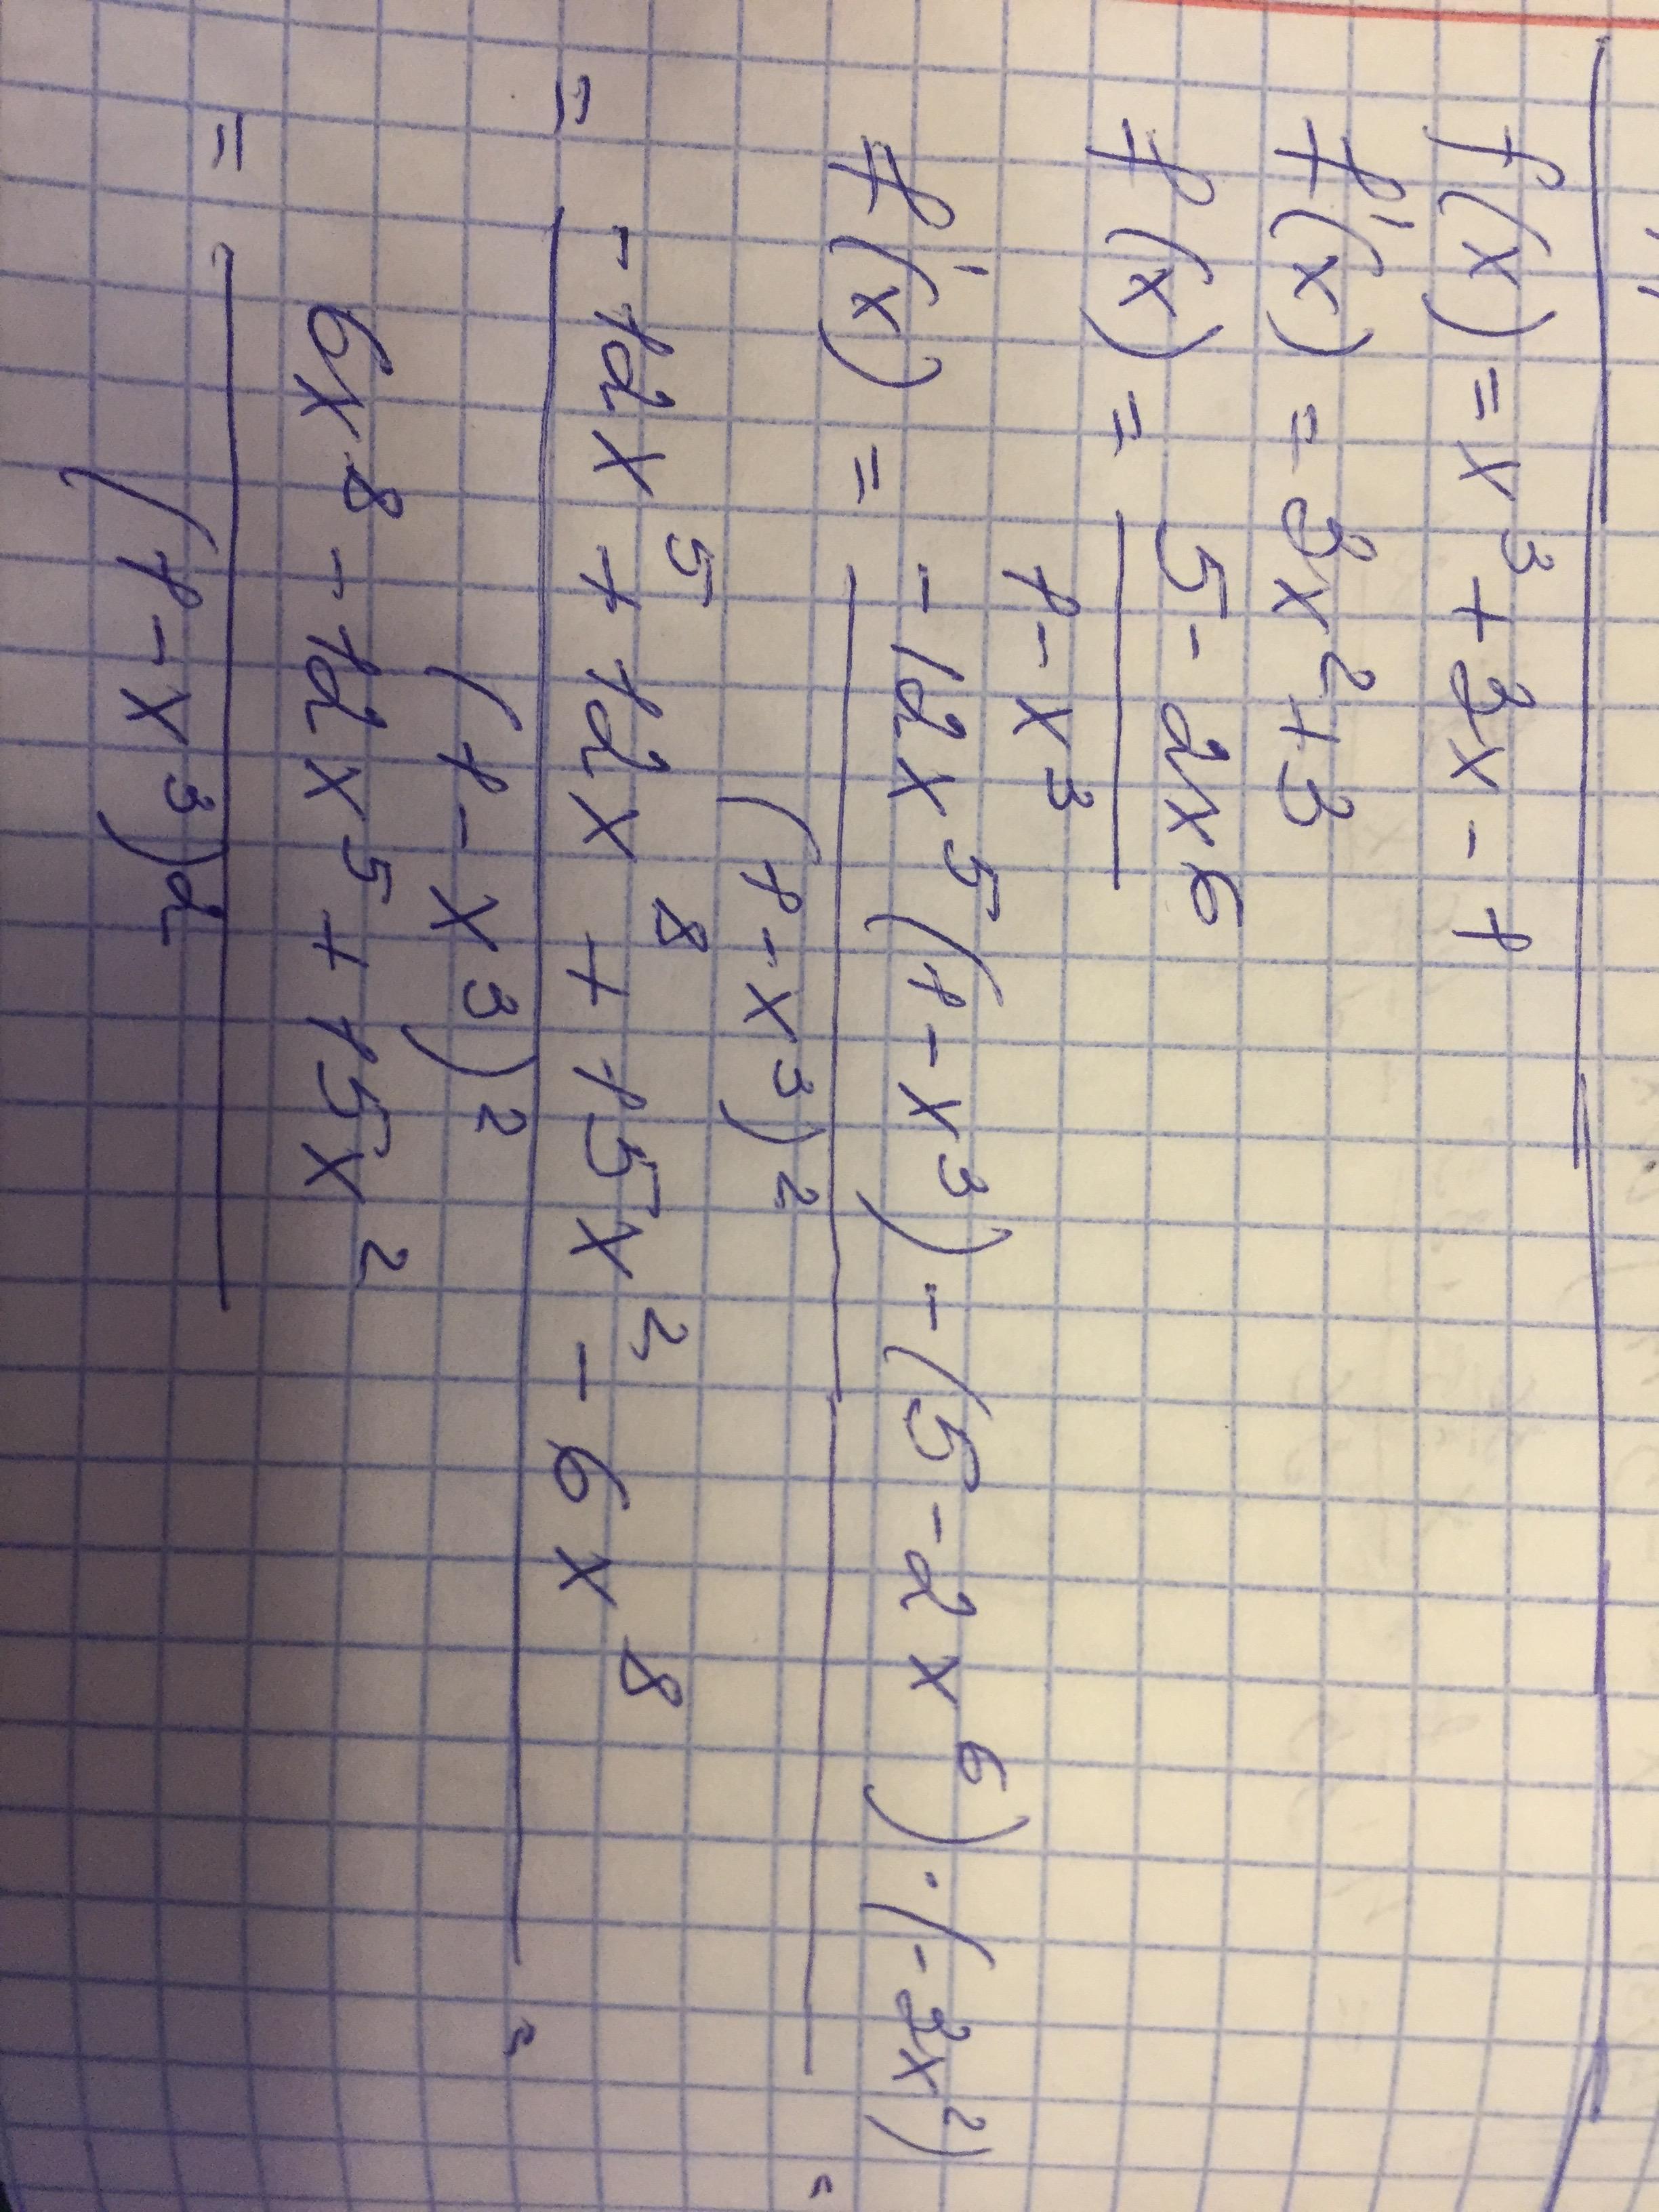 f(x) = x³ + 3x - 1
f'(x) = 3x² + 3
f(x) = 5 - 2x⁶
1 - x³
f'(x) = -12x⁵(1 - x³) - (5 - 2x⁶) · (-3x²) =
(1 - x³)²
= -12x⁵ + 12x⁸ + 15x² - 6x⁸ =
(1 - x³)²
= 6x⁸ - 12x⁵ + 15x²
(1 - x³)²